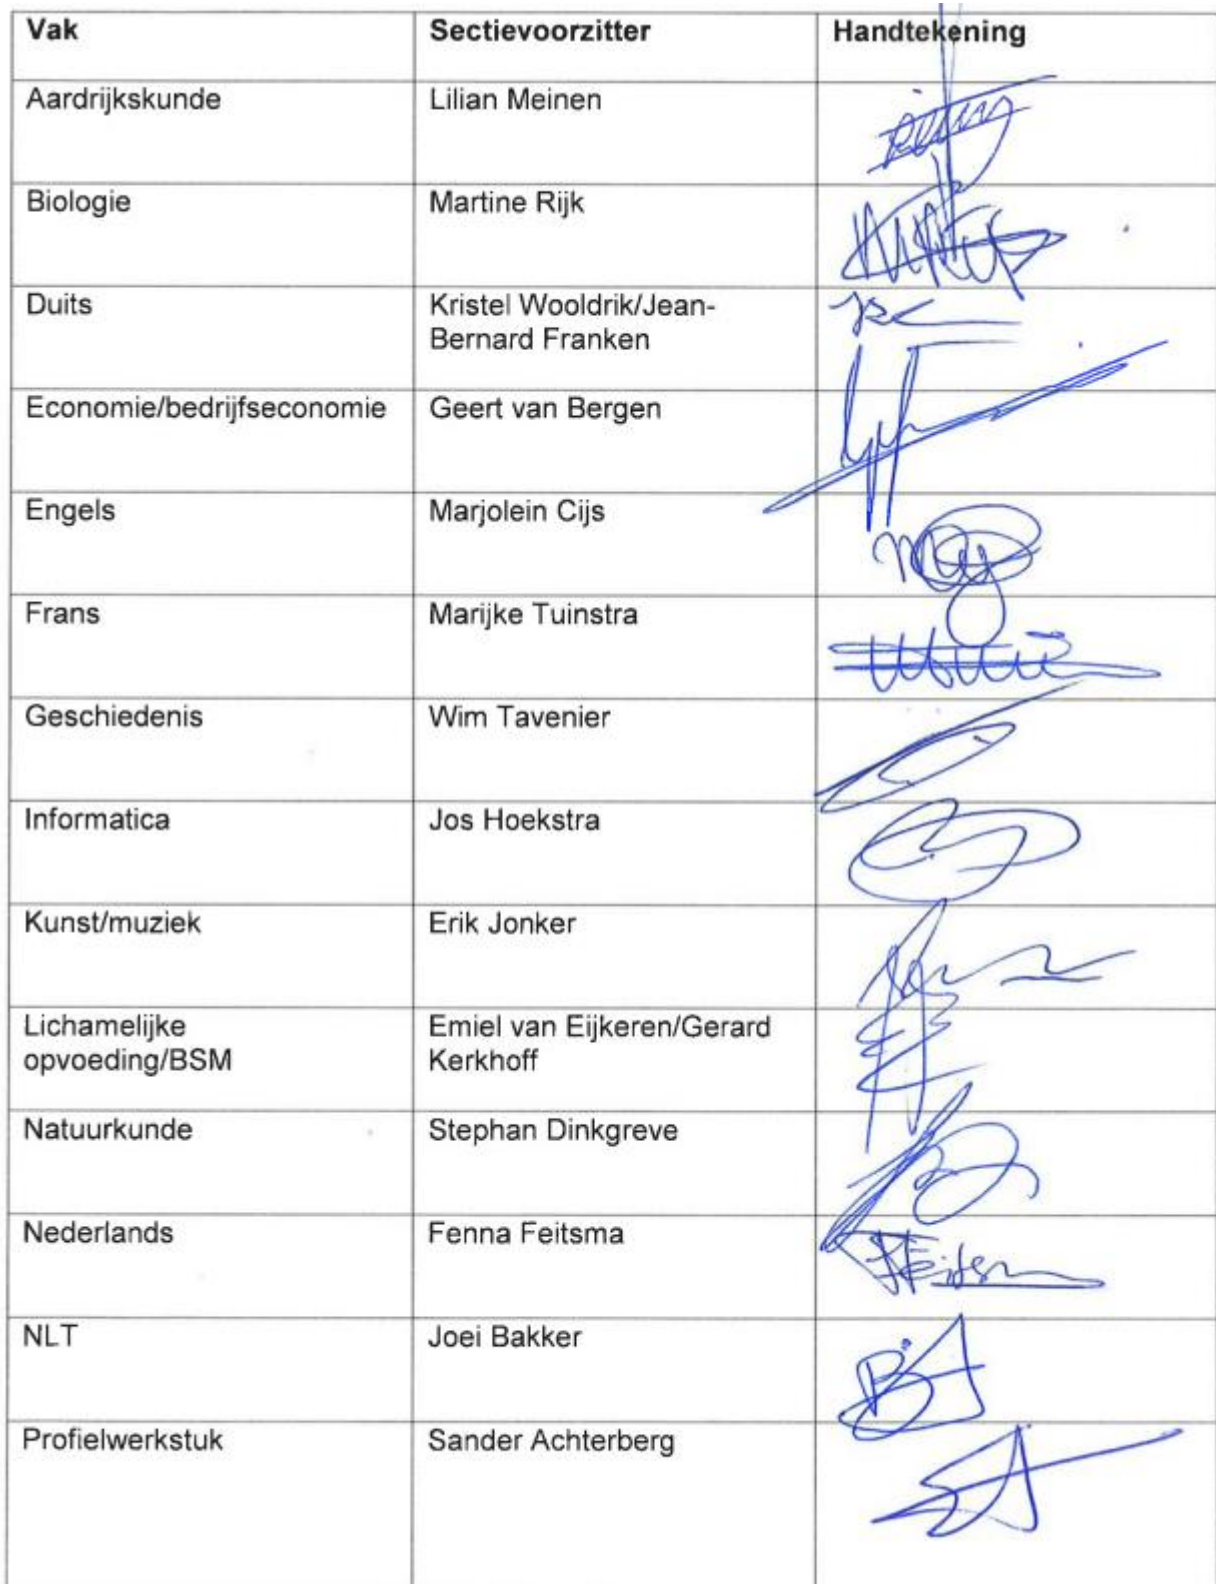 Vak Sectievoorzitter Handtekening
Aardrijkskunde Lilian Meinen
Biologie Martine Rijk
Duits Kristel Wooldrik/Jean-
Bernard Franken
Economie/bedrijfseconomie Geert van Bergen
Engels Marjolein Cijs
Frans Marijke Tuinstra
Geschiedenis Wim Tavenier
Informatica Jos Hoekstra
Kunst/muziek Erik Jonker
Lichamelijke Emiel van Eijkeren/Gerard
opvoeding/BSM Kerkhoff
Natuurkunde Stephan Dinkgreve
Nederlands Fenna Feitsma
NLT Joei Bakker
Profielwerkstuk Sander Achterberg